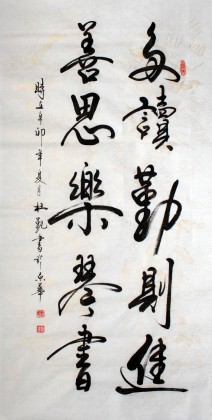 多讀勤則進
善思樂琴書
時在辛卯年夏月杜凱書於京華